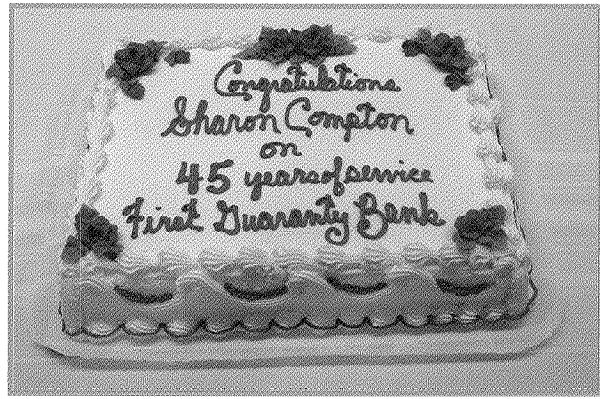 Congratulations
Sharon Compton
on
45 years of service
First Guaranty Bank